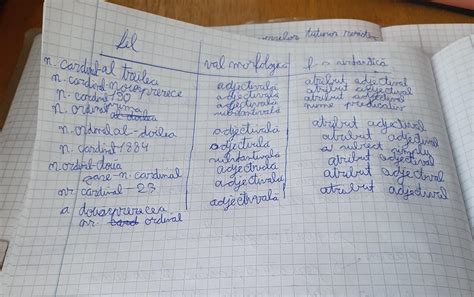 fel val morfologică f-c sintactică
n. cardinal-al treilea adjectivală atribut adjectival
n. cardinal-nocoprerece adjectivală atribut adjectival
n. cardinal-90 adjectivală atribut adjectival
n. ordinal prima substantivală nume predicativ
n. ordinal al-doilea adjectivală atribut adjectival
n. cardinal-1884 adjectivala atribut adjectival
n. ordinal-doua substantivala subiect simplu
n. cardinal adjectivala atribut adjectival
nr. cardinal-23 adjectivala atribut adjectival
a douasprezecea adjectivală atribut adjectival
nr. ordinal